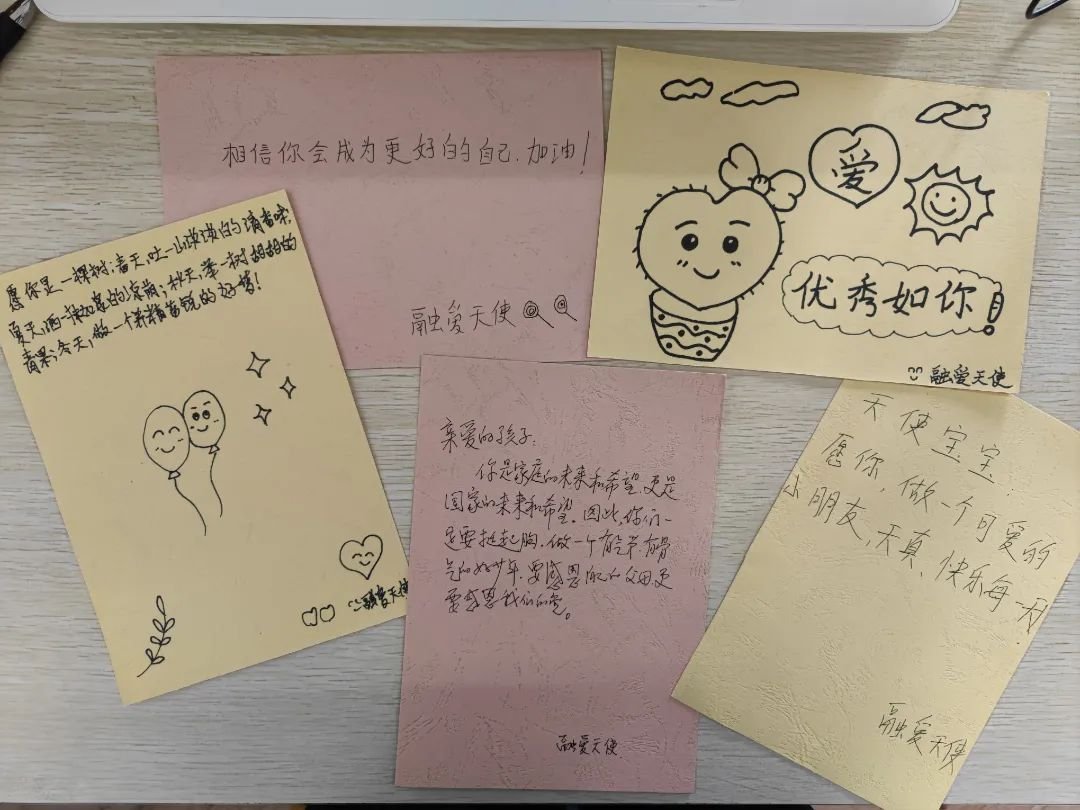 相信你会成为更好的自己.加油!
融爱天使
爱
优秀如你!
融爱天使
愿你是一棵树:春天,吐一山淡淡的清香味,
夏天,洒一神的凉荫;秋天,举一树甜甜的
青果;冬天,做一个养精蓄锐的好梦!
融爱天使
亲爱的孩子:
你是家庭的未来和希望.更是
国家的未来和希望。因此,你们一
定要挺起胸.做一个有气节.有骨
气的好少年.要感恩你的父母更
要感恩我们的党。
融爱天使
天使宝宝:
愿你,做一个可爱的
小朋友,天真、快乐每一天
融爱天使